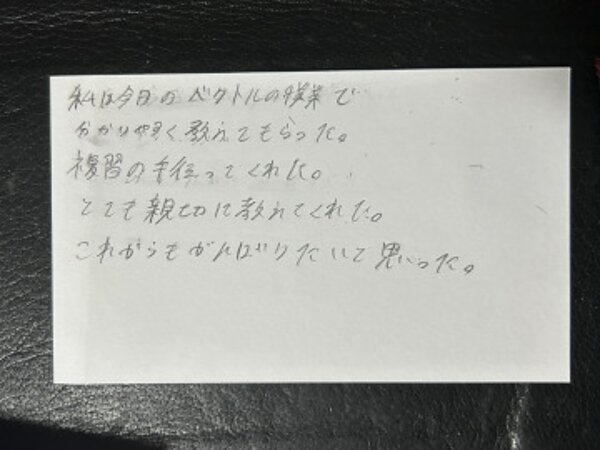 私は今日のベクトルの授業で
分かりやすく教えてもらった。
復習の手伝ってくれた。
とても親切に教えてくれた。
これからもがんばりたいて思いった。